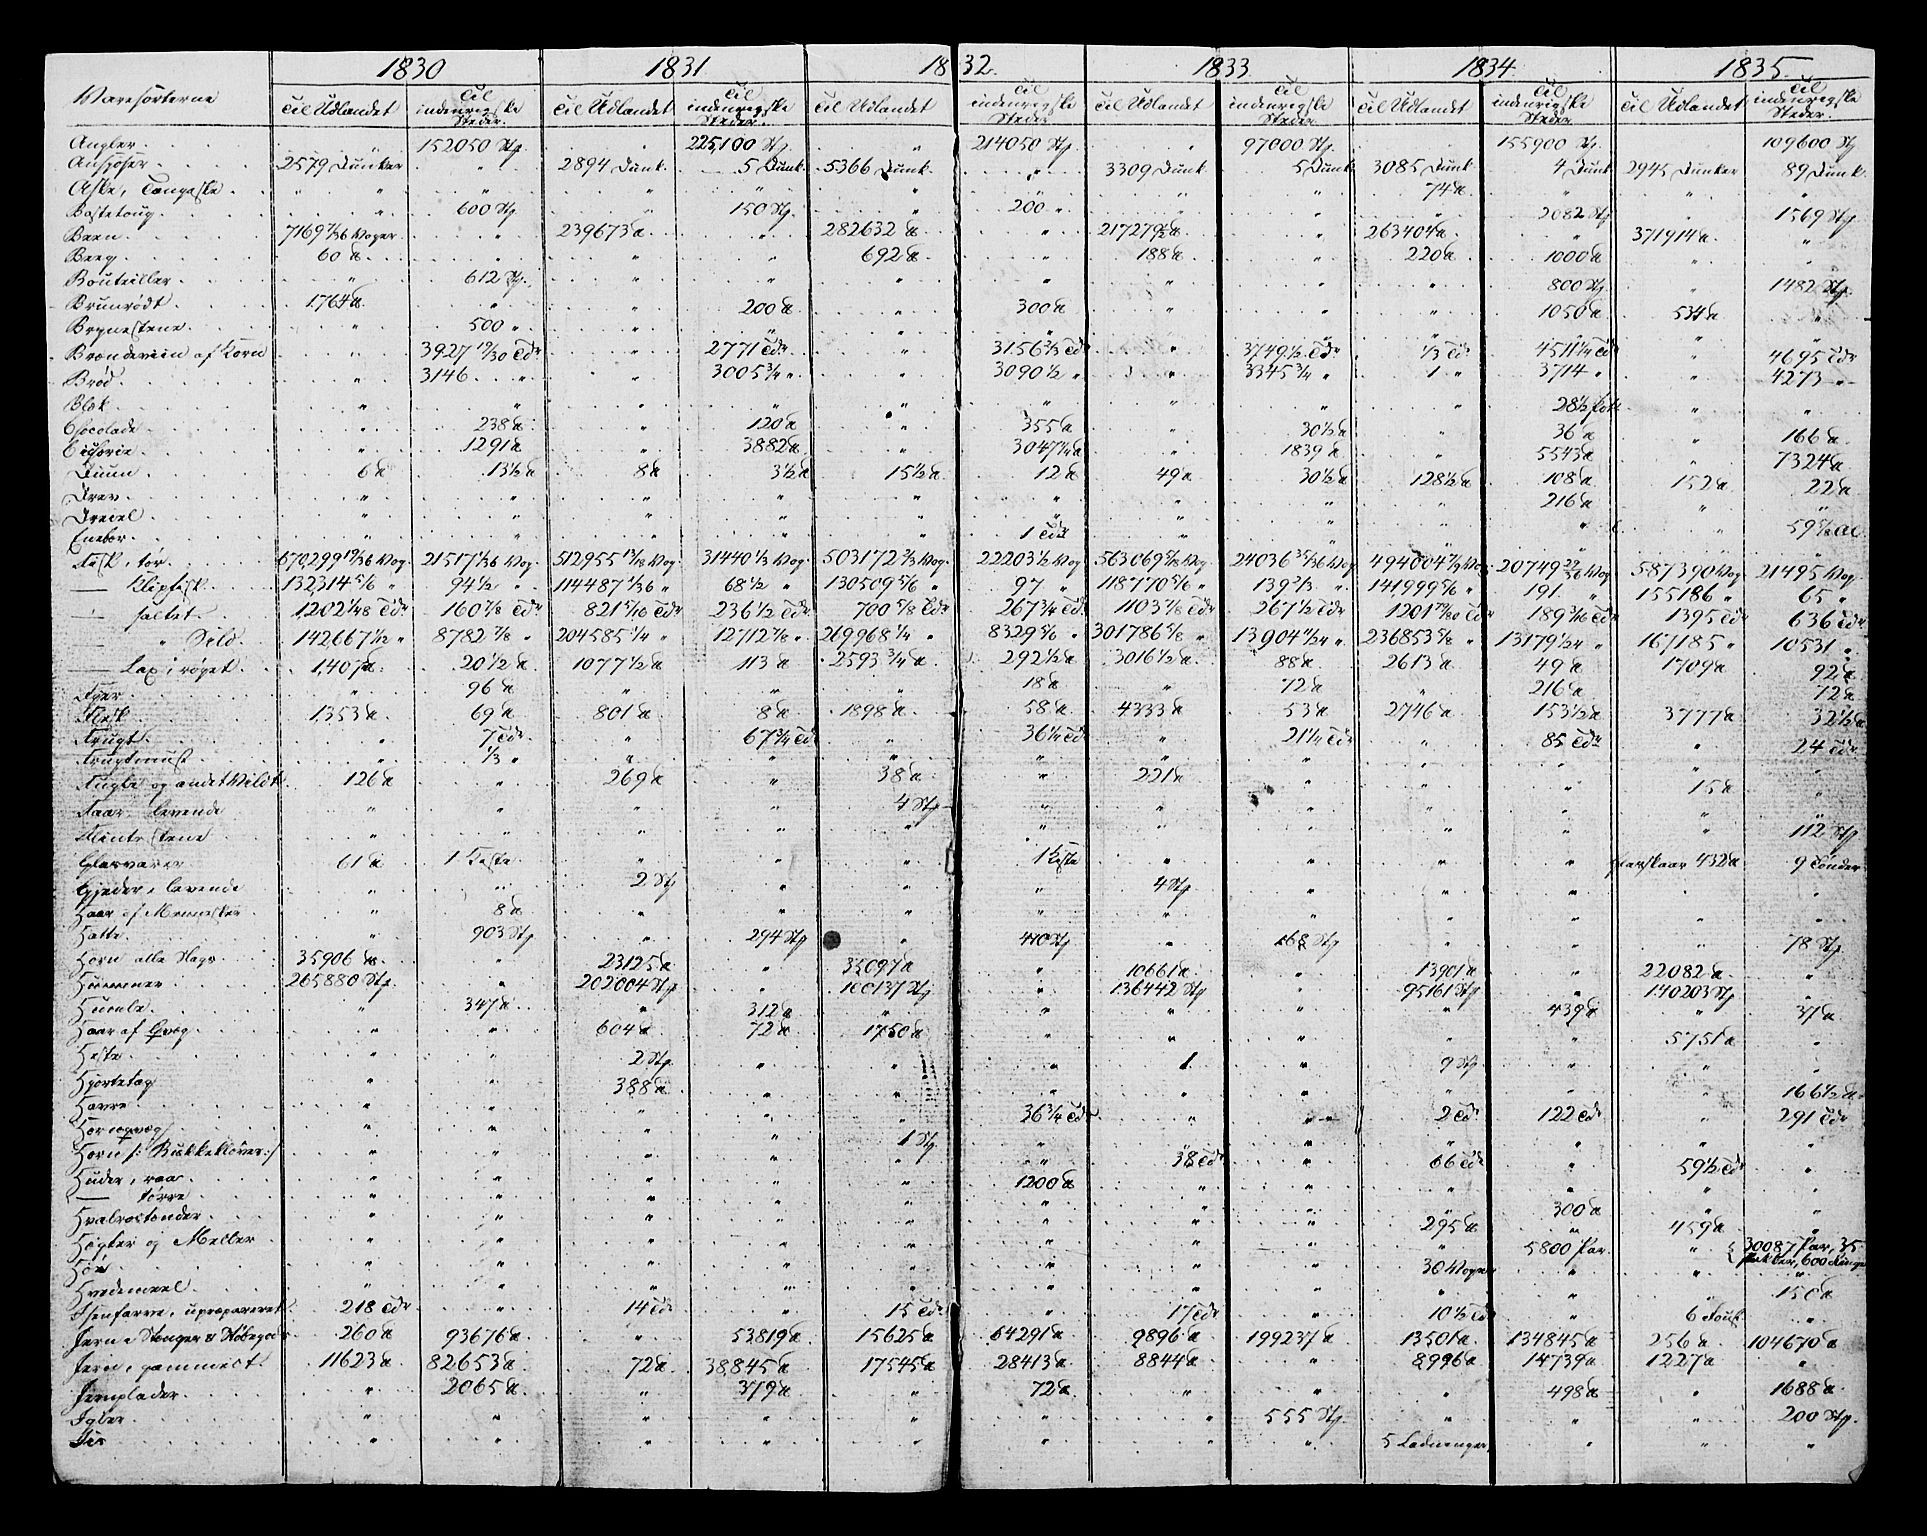 1830 1831 1832. 1833 1834. 1835.
Varesorterne til Udlandet til indenrigske Steder. til Udlandet til indenrigske Steder. til Udlandet til indenrigske Steder til Udlandet til indenrigske Steder. til Udlandet til indenrigske Steder til Udlandet til indenrigske Steder.
Angler. " 152050 Stk. 225,100 Stk. " 214050 Stk. " 97000 Stk. 155900 Stk. 109600 Stk.
Ansjoser. 2579 Dunker " 2894 Dunk. 5 Dunk. 5366 Dunk. " 3309 Dunk. 5 Dunk. 3085 Dunk. 4 Dunk. 2945 Dunker 89 Dunk.
Aske, Tangaske. " " " " " " " 74 ℔ " " "
Bastetoug. " 600 Stk. " 150 Stk. " 200 " " 2082 Stk. " 1569 Stk.
Been. 7169 7/36 Voger. " 239673 ℔. " 282632 ℔. " 217279½ ℔. " 263404 ℔. " 371914 ℔. "
Beeg. 60 ℔. " " " 692 ℔. " 188 ℔. " 220 ℔. 1000 ℔. " "
Bouteiller. " 612 Stk. " " " " " " " 800 Stk. " 1482 Stk.
Brunrødt. 1764 ℔. " " 200 ℔. " 300 ℔. " " " 1050 ℔. 534 ℔. "
Brynestene. " 500 " " " " " " " " " " "
Brændeviin af Korn " 3927 19/30 Tdr " 2771 Tdr. " 3156⅔ Tdr " 3749½ Tdr ⅓ Tdr 4511¼ Tdr " 4695 Tdr
Brød. " 3146 " " 3005¾ " " 3090½ " " 3345¾ " 1 " 3714 " " 4273 "
Blæk " " " " " " " " " 28½ Pott " "
Chocolade. " 238 ℔. " 120 ℔ " 355 ℔ 30½ ℔ " 36 ℔ " 166 ℔.
Cichorie " 1291 ℔ " 3882 ℔. " 3047¼ ℔ " 1839 ℔ " 5543 ℔ " 7324 ℔.
Duun. 6 ℔ 13½ ℔ 8 ℔ 3½ ℔ 15½ ℔. 12 ℔ 49 ℔ 30½ ℔ 128½ ℔ 108 ℔ 152 ℔ 22 ℔
Drev. " " " " " " " " " 216 ℔. " "
Dreiel. " " " " " " " " " " " "
Enebær. " " " " " 1 Tdr " " " " "
Fisk, tør. 670,299 19/36 Vog. 21517 1/36 Vog. 512955 13/18 Vog. 31440⅓ Vog. 503172⅔ Vog. 22203½ Vog 563069 5/18 Vog. 24036 35/36 Vog 494004 7/9 Vog 20749 22/36 Vog 587390 Vog 21495 Vog
— Klipfisk. 132,314⅚ " 94½ " 114487 1/36 " 68½ " 130509⅚ " 97 " 118770⅚ " 139⅔ " 141,999⅚ " 191 " 155186 " 65 "
— saltet. 1,202 1/48 Tdr 160⅞ Tdr 821 5/16 Tdr 236½ Tdr 700⅝ Tdr 267¾ Tdr 1103⅞ Tdr 267½ Tdr 1395 Tdr 636 Tdr
— " Sild. 142,667½ " 8782⅞ " 204585¼ " 12712⅞ " 269,968¼ " 8329⅚ " 301786⅝ " 236853⅝ " 167185 " 10531 "
— Lax, røget. 1,407 ℔. 20½ ℔ 1077½ ℔ 113 ℔ 2593¾ ℔ 292½ ℔ 3016½ ℔. 88 ℔ 2613 ℔ 49 ℔. 1709 ℔ 92 ℔
Fjer " 96 ℔ " " " 18 ℔ " 72 ℔ " 216 ℔ 72 ℔
Flesk 1353 ℔. 69 ℔ 801 ℔ 8 ℔ 1898 ℔. 58 ℔ 4333 ℔ 53 ℔ 2746 ℔ 153½ ℔ 3777 ℔ 32½ ℔
Frugt. " 7 Tdr. " 67¾ Tdr " 36¼ Tdr " 21¼ Tdr " 85 Tdr " 24 Tdr.
Frugtmust " ⅓ " " " " " " " " " "
Fugle og andet Vildt 126 ℔ " 269 ℔ " 38 ℔ " 221 ℔ " " " 15 ℔ "
Faar, levende " " " " 4 Stk. " " " " " " "
Flintstene " " " " " " " " " " " 112 Stk.
Glasvarer 61 ℔ 1 Kiste " " " 1 Kiste " " " " Glasskaar 432 ℔ 9 Tønder.
Gjeder, levende " " 2 Stk " " " 4 Stk. " " " " "
Haar af Mennesker " 8 ℔ " " " " " " " " " "
Hatte " 903 Stk " 294 Stk " 410 Stk " 168 Stk " " " 78 Stk.
Horn alle Slags 35906 ℔. " 23125 ℔ " 35097 ℔ " 10661 ℔ " 13901 ℔ " 22082 ℔ "
Hummer 265880 Stk. " 202004 Stk " 100137 Stk " 136442 Stk " 95161 Stk " 140203 Stk "
Humle " 347 ℔ " 312 ℔ " " " " " 439 ℔ " 37 ℔
Haar af Qvæg " " 604 ℔ 72 ℔ 1750 ℔ " " " " " 5751 ℔ "
Heste " " 2 Stk " " " 1 " 9 Stk " " "
Hjortetag " " 388 ℔ " " " " " " " " 166½ ℔
Havre " " " " " 36¾ Tdr " " 2 Tdr 122 Tdr 291 Tdr
Hornqvæg " " " " 1 Stk " " " " " " "
Horn /: Bukkekløver :/ " " " " " " 38 Tdr " 66 Tdr " 59½ Tdr "
Huder, raa " " " " " 1200 ℔ " " " " " "
— tørre " " " " " " " " " 300 ℔ " "
Hvalrostænder " " " " " " " " 295 ℔ " 459 ℔ "
Hægter og Maller " " " " " " " " " 5800 Par. " 30087 Par, 35 Pakker, 600 Ringe
Høe " " " " " " " " 30 Voger " " "
Hvedemeel " " " " " " " " " " " 150 ℔
Jernfarve, upræpareret 218 Tdr " 14 Tdr " 15 Tdr " 17 Tdr " 10½ Tdr " 6 "
Jern i Stænger & Støbegods 260 ℔ 93676 ℔ " 53819 ℔ 15625 ℔ 64291 ℔ 9896 ℔ 199237 ℔ 13501 ℔ 134845 ℔ 256 ℔ 104670 ℔
Jern, gammelt 11623 ℔ 82653 ℔ 72 ℔ 38,845 ℔ 17545 ℔ 28413 ℔ 8844 ℔ " 8,996 ℔ 14739 ℔ 1227 ℔ "
Jernplader. " 2065 ℔. " 379 ℔ " 72 ℔ " " " 498 ℔ " 1688 ℔
Igler " " " " " " " 555 Stk. " " " 200 Stk.
Iis " " " " " " " " 5 Ladninger " " "